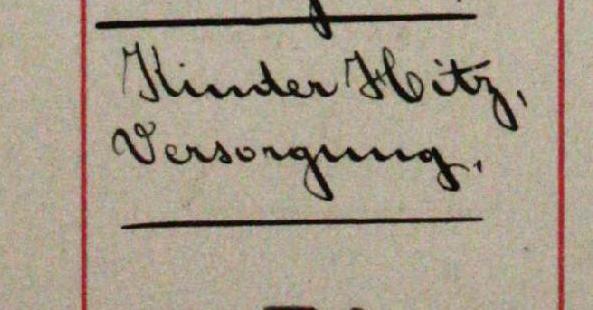 Kinder Hitz,
Versorgung.